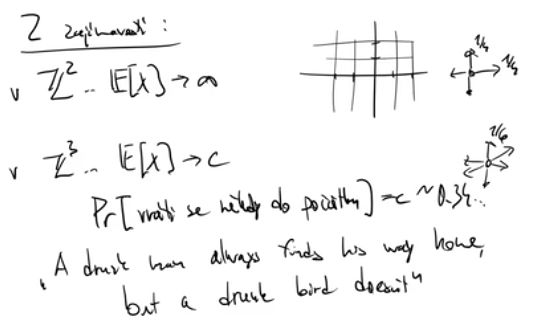 2 zajímavosti:
v ℤ² .. 𝔼[X] → ∞
1/4
1/4
v ℤ³ .. 𝔼[X] → c
1/6
Pr[vrátí se někdy do počátku] = c ~ 0.34...
„A drunk man always finds his way home,
but a drunk bird doesn't"